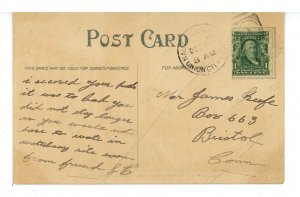 POST CARD
THIS SPACE MAY BE USED FOR CORRESPONDENCE.
FOR
UNION CITY
8 AM
i received your
it was to bad you
did not stay longer
so you would not
have to wate in
watebury site soon
from friend
Mr James Keefe
Box 663
Bristol
Conn